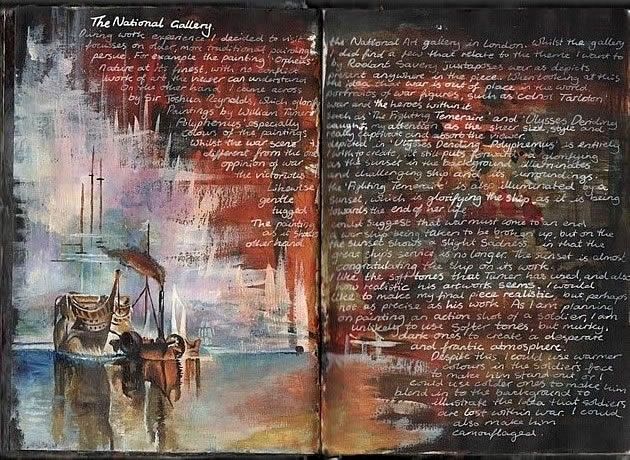 The National Gallery.
During work experience I decided to visit
focusses on older, more traditional paintings
persue. For example the painting 'Orpheus'
nature at its finest, with no
work of art we never can understand
On the other hand I came across
by Sir Joshua Reynolds. Such
Paintings by William Turner
Polyphemus' especially
Colours of the paintings
Whilst the war scene
different from the
oppinion of war
the victorious
Likewise
gentle
tugged
The painting
as it shows
other hand
the National Art gallery in London. Whilst the gallery
did find a few that relate to the theme I want to
Roelant Savery juxtaposes war as depicts
present anywhere in the piece. When looking at this
the idea that war is out of place in the world
portraits of war figures such as Colonel Tarleton,
war and the heroes within it.
such as 'The Fighting Temeraire' and 'Ulysses Deriding
caught my attention as the sheer size, style and
really captivate and absorb the viewer.
depicted in 'Ulysses Deriding Polyphemus' is entirely
wish to create, it still puts forward a glorifying
The sunset in the background illuminates
and challenging ship and its surroundings.
the 'Fighting Temeraire' is also illuminated by a
sunset, which is glorifying the ship as it is being
towards the end of her life.
could suggest that war must come to an end
warship being taken to be broken up, but on the
the sunset shows a slight sadness in that the
great ship's service is no longer. The sunset is almost
congratulating the ship on its work.
like the soft tones that Turner has used, and also
how realistic his artwork seems. I would
like to make my final piece realistic but perhaps
not as precise as his work. As I am planning
on painting an action shot of a soldier, I am
unlikely to use softer tones, but murky,
dark ones to create a desperate
and frantic atmosphere.
Despite this, I could use warmer
colours in the soldiers face
to make him stand out or I
could use colder ones to make him
blend in to the background to
illustrate the idea that soldiers
are lost within war. I could
also make him
camouflaged.